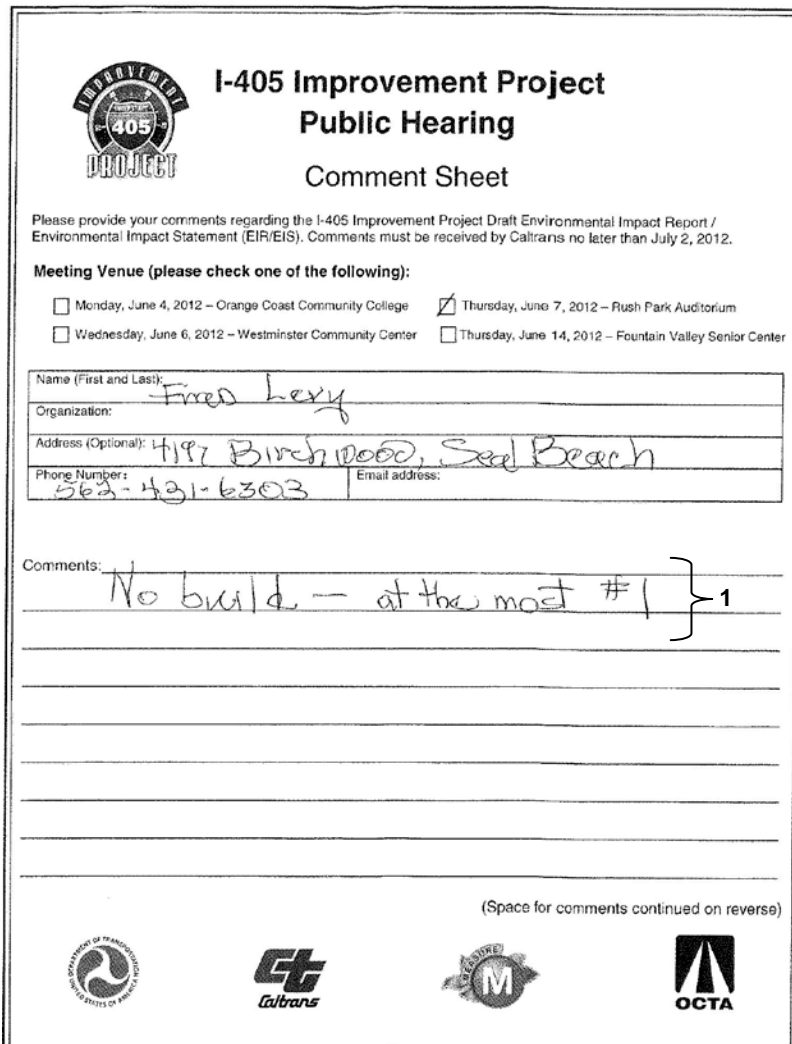 IMPROVEMENT
405
PROJECT
I-405 Improvement Project
Public Hearing
Comment Sheet
Please provide your comments regarding the I-405 Improvement Project Draft Environmental Impact Report /
Environmental Impact Statement (EIR/EIS). Comments must be received by Caltrans no later than July 2, 2012.
Meeting Venue (please check one of the following):
Monday, June 4, 2012 – Orange Coast Community College
Thursday, June 7, 2012 – Rush Park Auditorium
Wednesday, June 6, 2012 – Westminster Community Center
Thursday, June 14, 2012 – Fountain Valley Senior Center
Name (First and Last): Fred Levy
Organization:
Address (Optional): 4197 Birchwood, Seal Beach
Phone Number: 562-431-6303
Email address:
Comments:
No build — at the most #1
1
(Space for comments continued on reverse)
DEPARTMENT OF TRANSPORTATION
UNITED STATES OF AMERICA
Ct
Caltrans
MEASURE
M
OCTA